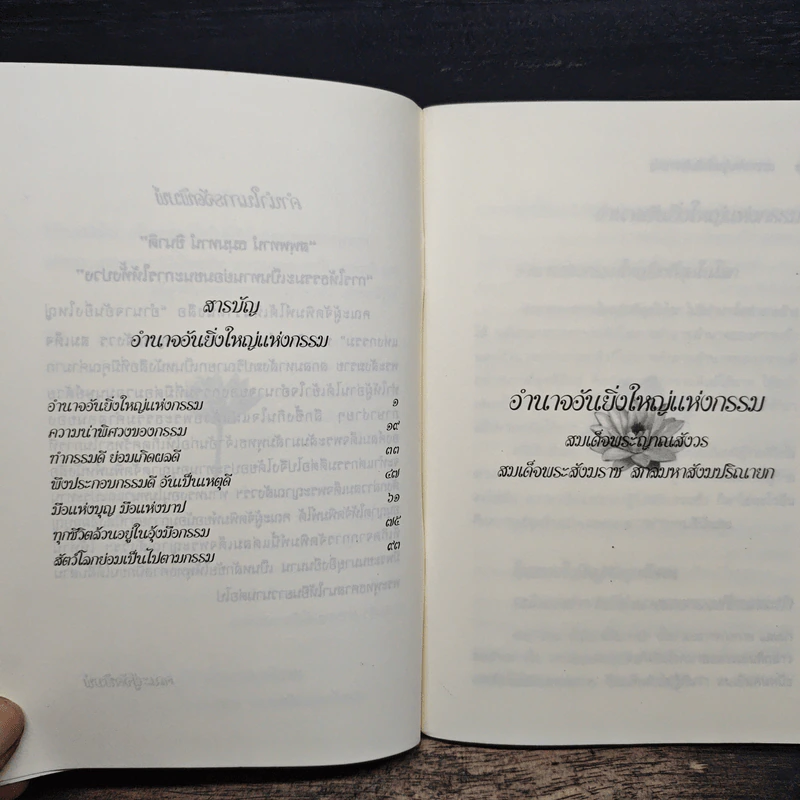 สารบัญ
อำนาจอันยิ่งใหญ่แห่งกรรม
อำนาจอันยิ่งใหญ่แห่งกรรม ๑
ความน่าพิศวงของกรรม ๑๙
ทำกรรมดี ย่อมเกิดผลดี ๓๓
พึงประกอบกรรมดี อันเป็นเหตุดี ๔๗
มือแห่งบุญ มือแห่งบาป ๖๑
ทุกชีวิตล้วนอยู่ในอุ้งมือกรรม ๗๕
สัตว์โลกย่อมเป็นไปตามกรรม ๙๓
อำนาจอันยิ่งใหญ่แห่งกรรม
สมเด็จพระญาณสังวร
สมเด็จพระสังฆราช สกลมหาสังฆปริณายก